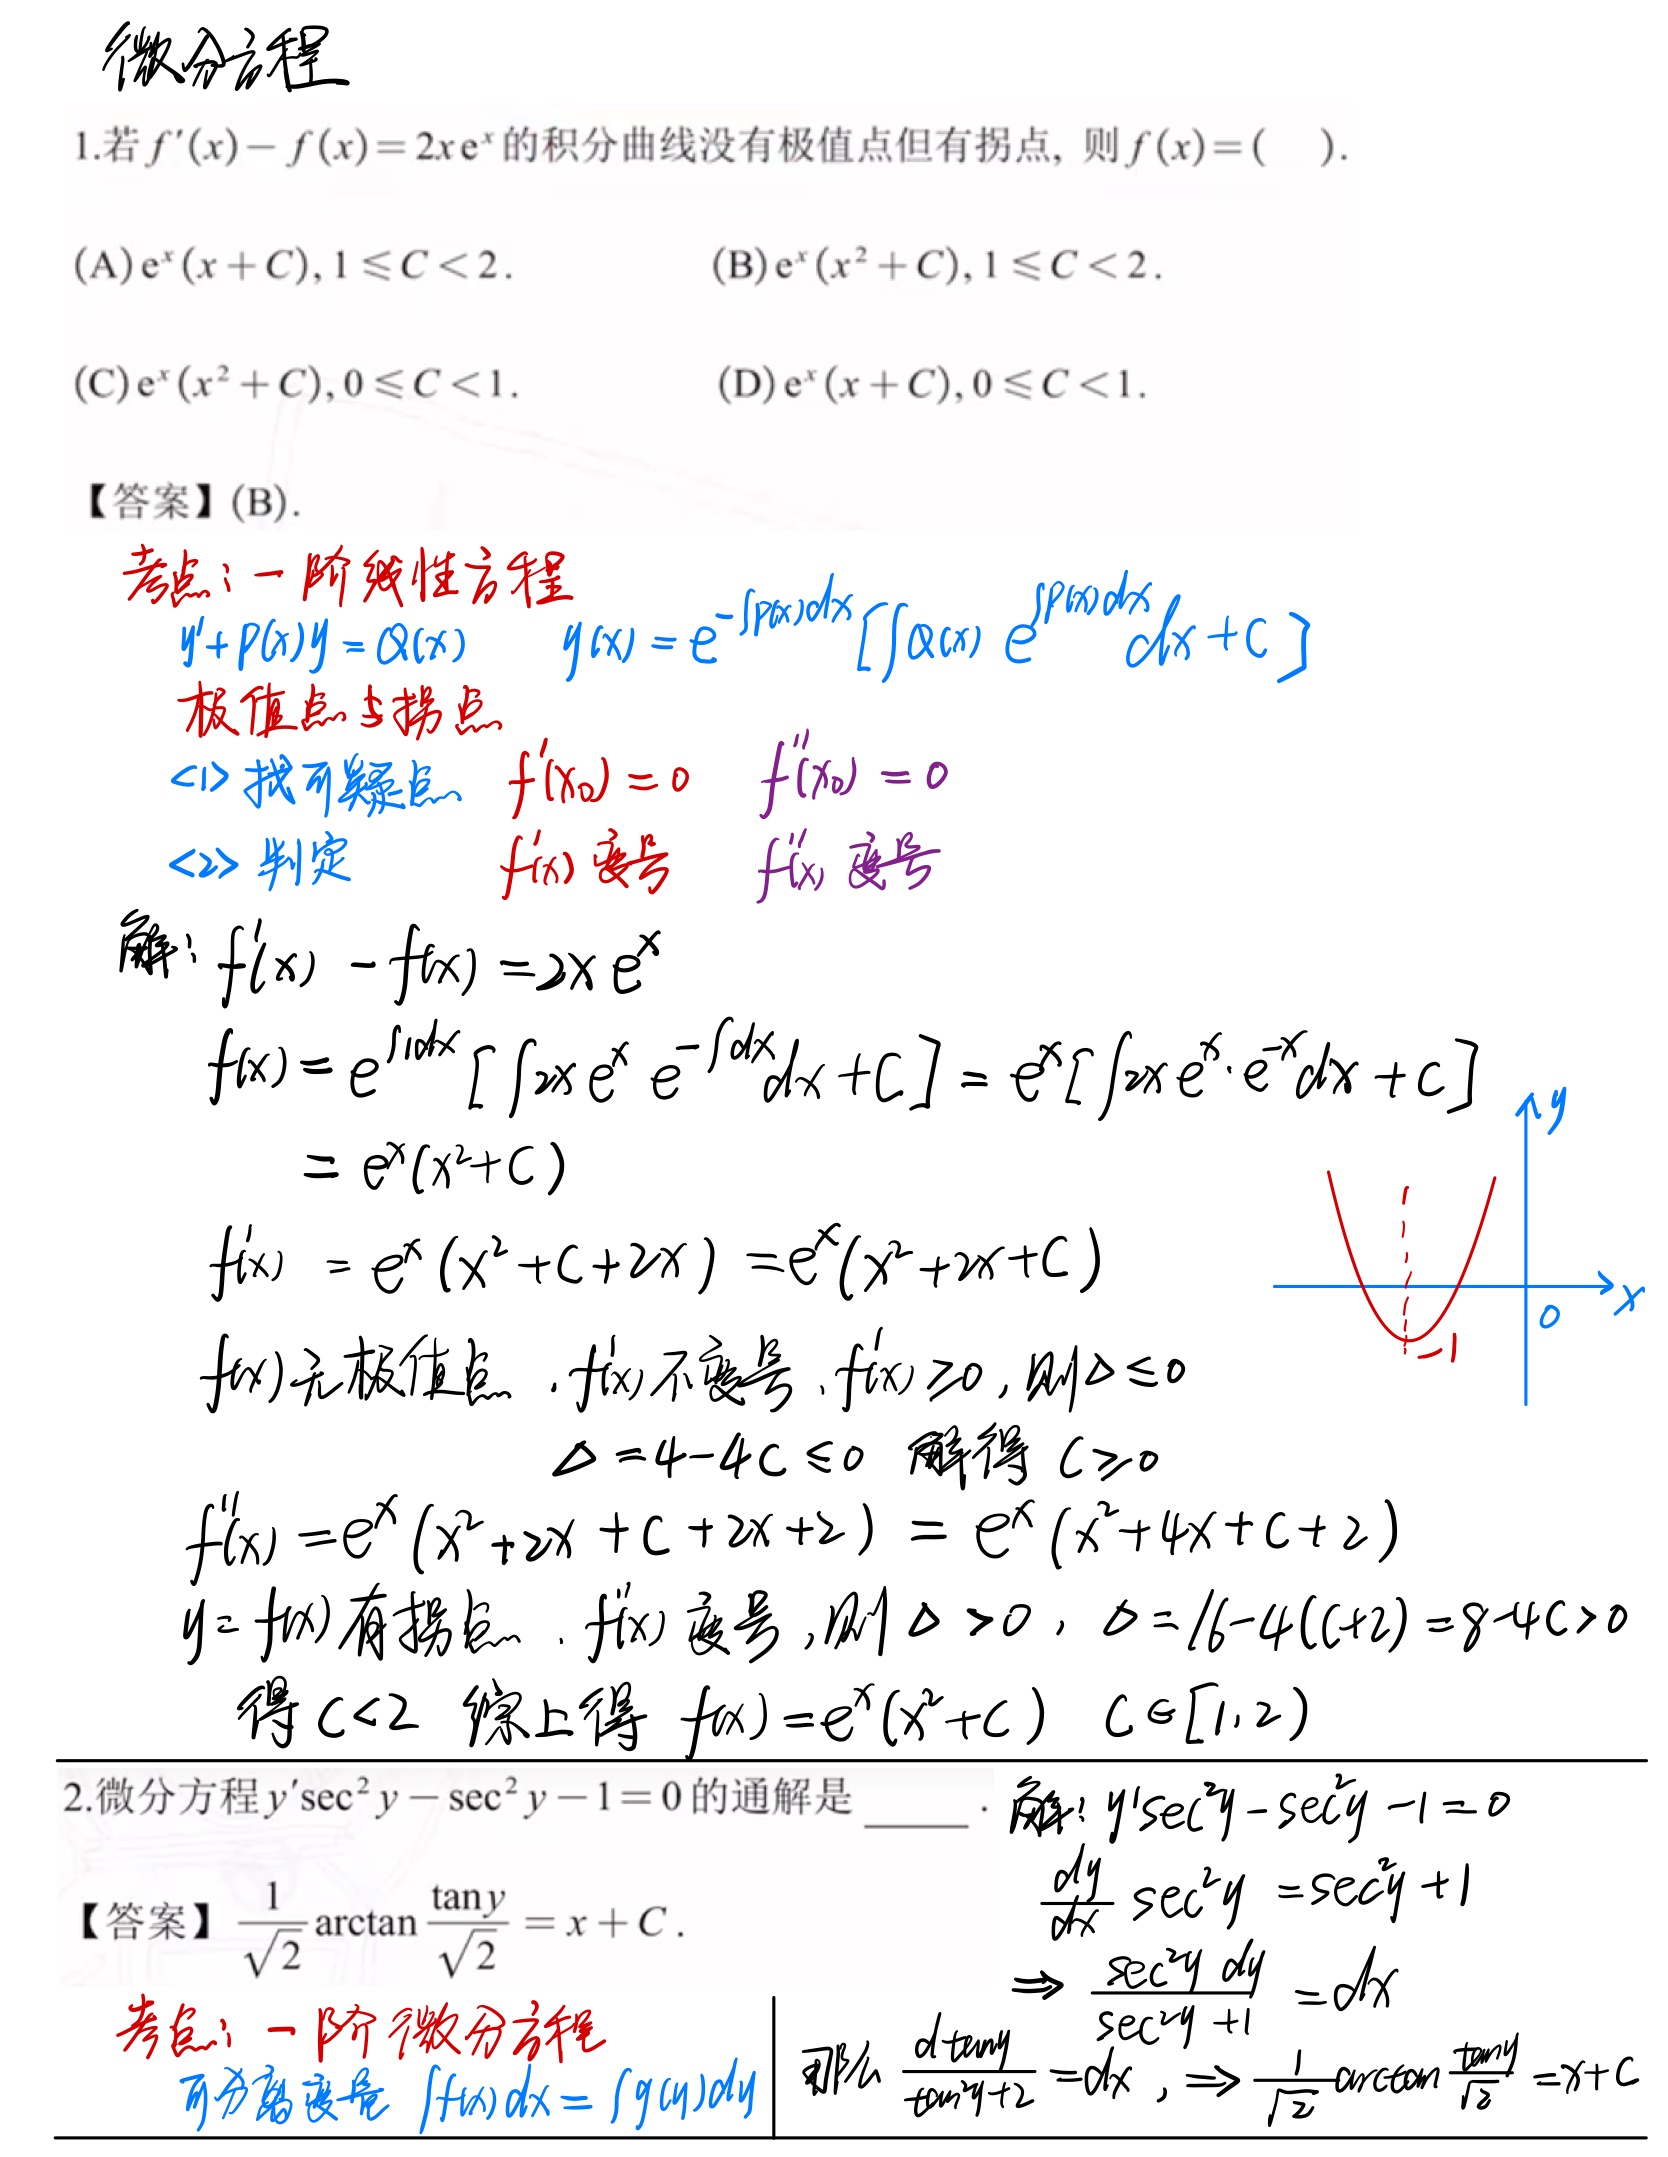 微分方程
1.若 f′(x)－f(x)＝2xeˣ 的积分曲线没有极值点但有拐点, 则 f(x)＝(　).
(A) eˣ(x＋C), 1≤C＜2.　(B) eˣ(x²＋C), 1≤C＜2.
(C) eˣ(x²＋C), 0≤C＜1.　(D) eˣ(x＋C), 0≤C＜1.
【答案】(B).
考点：一阶线性方程
y'+P(x)y=Q(x)　y(x)=e^{-∫P(x)dx}[∫Q(x) e^{∫P(x)dx}dx+C]
极值点与拐点
<1> 找可疑点　f'(x₀)=0　f''(x₀)=0
<2> 判定　f'(x) 变号　f''(x) 变号
解：f'(x) - f(x) = 2x eˣ
f(x) = e^{∫1dx}[∫2x eˣ e^{-∫dx}dx+C] = eˣ[∫2x eˣ·e⁻ˣdx+C]
= eˣ(x²+C)
f'(x) = eˣ(x²+C+2x) = eˣ(x²+2x+C)
y
x
0
-1
f(x)无极值点、f'(x)不变号、f'(x)≥0, 则Δ≤0
Δ=4-4C≤0 解得 C≥0
f''(x) = eˣ(x²+2x+C+2x+2) = eˣ(x²+4x+C+2)
y=f(x)有拐点、f''(x)变号, 则Δ>0, Δ=16-4(C+2)=8-4C>0
得 C<2 综上得 f(x)=eˣ(x²+C) C∈[1,2)
2.微分方程 y′sec²y－sec²y－1＝0 的通解是 ____ .
【答案】 1/√2 arctan tany/√2 ＝ x＋C.
考点：一阶微分方程
可分离变量 ∫f(x)dx=∫g(y)dy
解：y'sec²y-sec²y-1=0
dy/dx sec²y = sec²y+1
⇒ sec²y dy/sec²y+1 = dx
那么 dtany/tan²y+2 = dx, ⇒ 1/√2 arctan tany/√2 = x+C